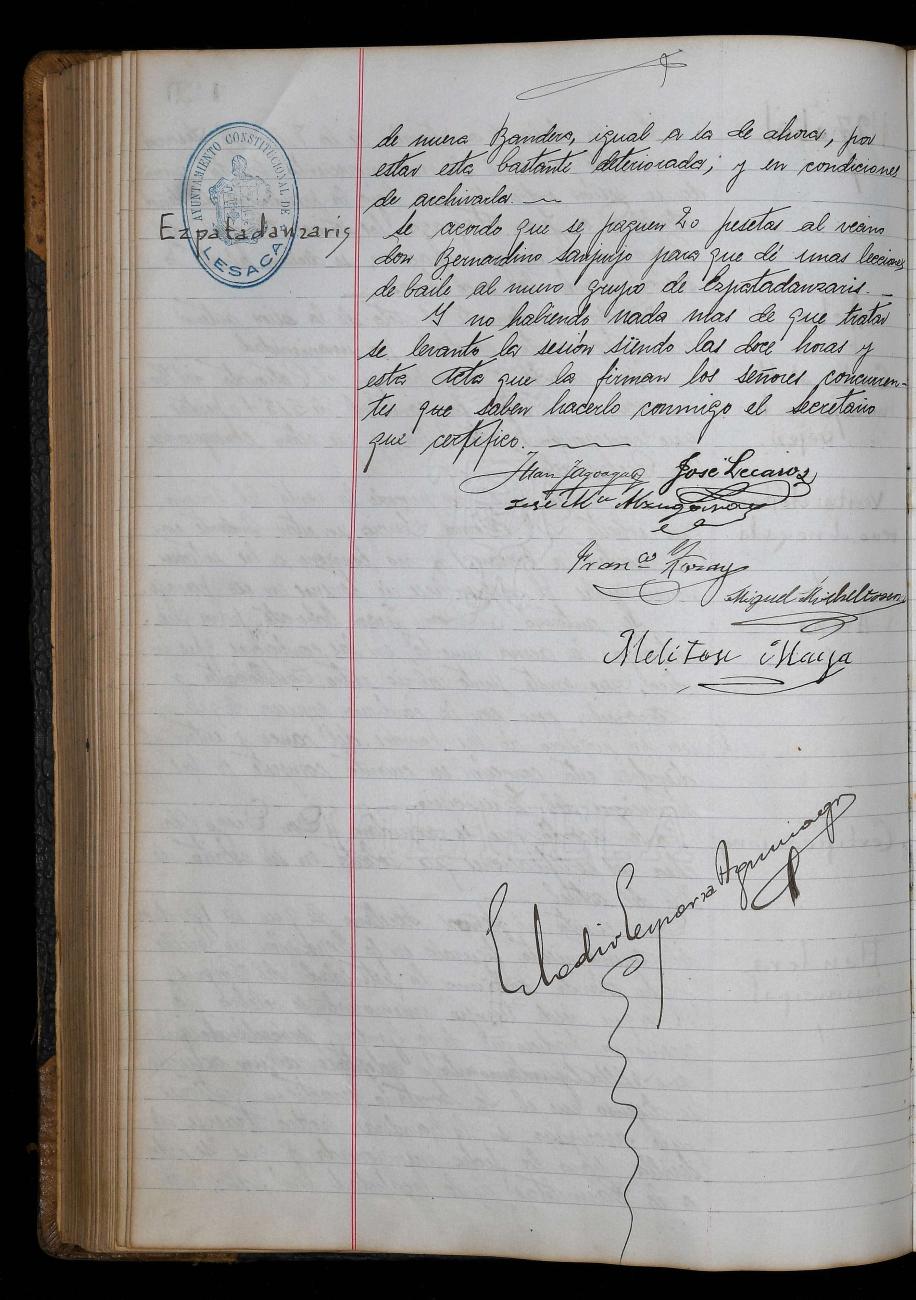 de nueva Bandera, igual a la de ahora, por
estar esta bastante deteriorada; y en condiciones
de archivarla.
AYUNTAMIENTO CONSTITUCIONAL DE
LESACA
Ezpatadanzaris
Se acordo que se paguen 20 pesetas al vecino
don Bernardino Sanpujo para que dé unas lecciones
de baile al nuevo grupo de Ezpatadanzaris.
Y no habiendo nada mas de que tratar
se levanto la sesión siendo las doce horas y
esta Acta que la firman los señores concurren-
tes que saben hacerlo conmigo el secretario
que certifico.
Juan José Lecaroz
José Mª
Franco
Miguel Micheltorena
Melitón Maya
Eladio Esparza